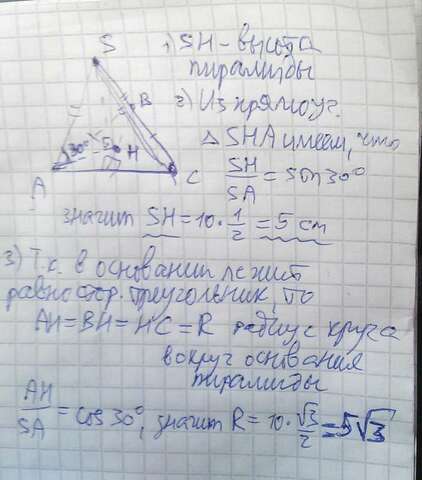 S
B
30°
5
H
A
C
1) SH - высота
пирамиды
2) Из прямоуг.
△ SHA имеем, что
SH/SA = sin 30°
значит SH = 10 · 1/2 = 5 см
3) Т.к. в основании лежит
равностор. треугольник, то
AH = BH = HC = R радиус круга
вокруг основания
пирамиды
AH/SA = cos 30°, значит R = 10 · √3/2 = 5√3